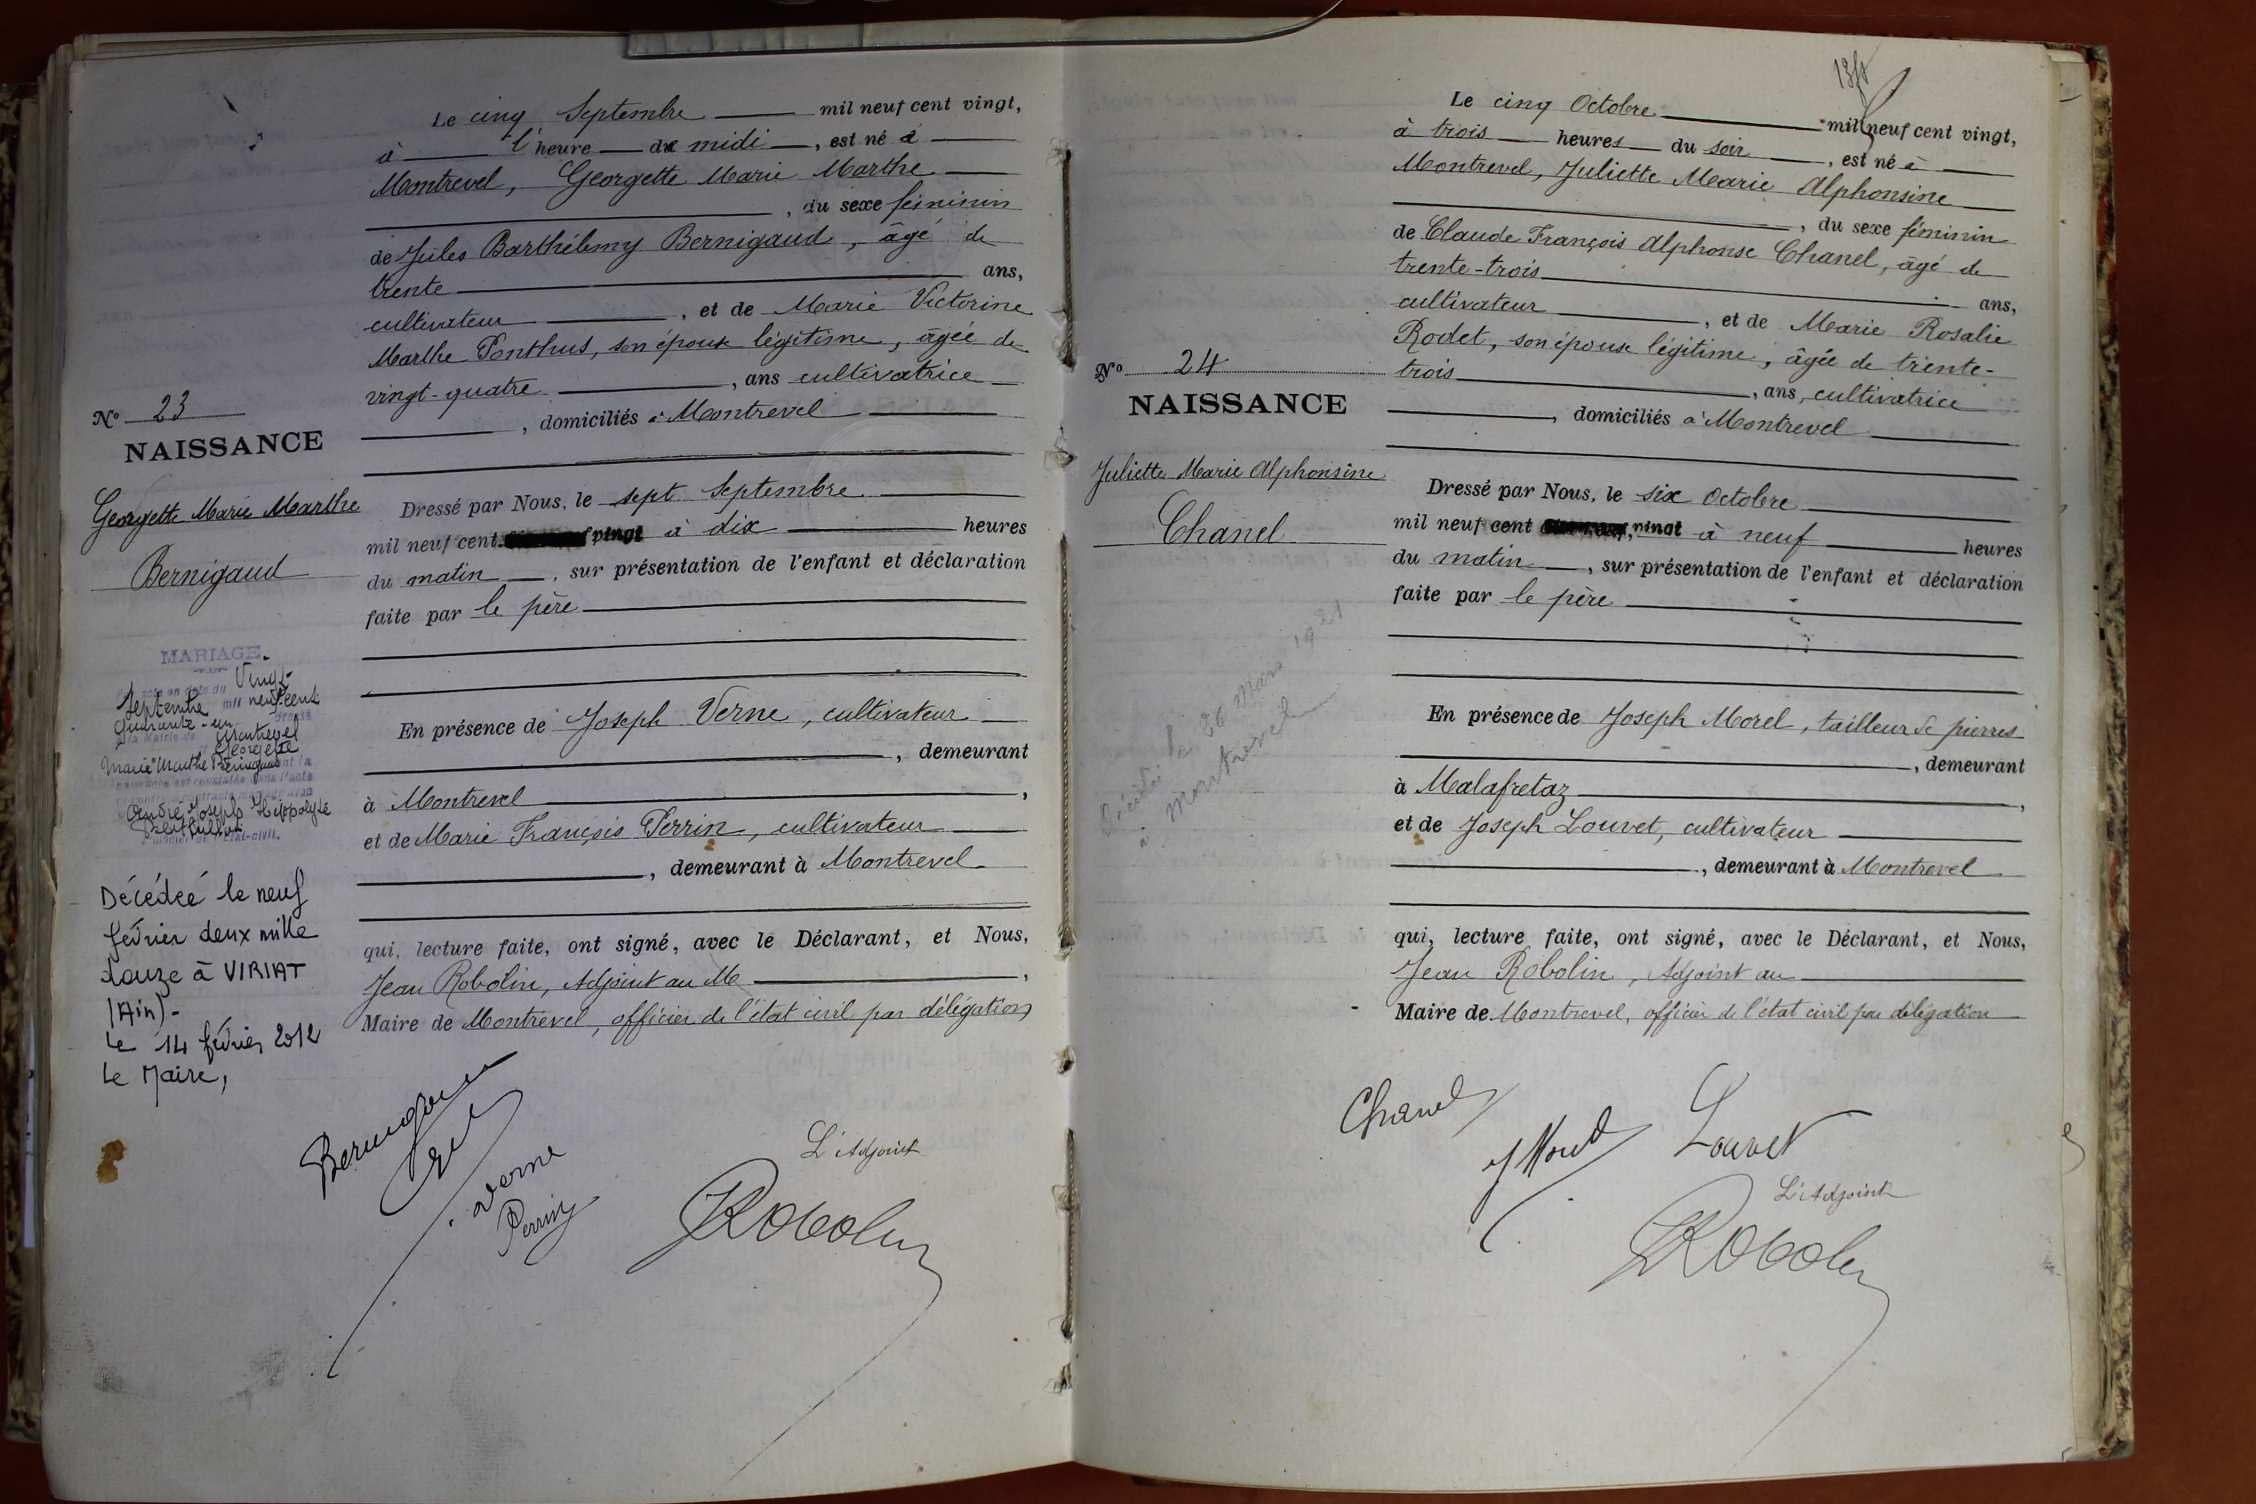 Le cinq Septembre mil neuf cent vingt,
à l'heure de midi, est né à
Montrevel, Georgette Marie Marthe
, du sexe féminin
de Jules Barthélemy Bernigaud, âgé de
trente ans,
cultivateur, et de Marie Victorine
Marthe Ponthus, son épouse légitime, âgée de
vingt-quatre, ans cultivatrice
, domiciliés à Montrevel
N° 23
NAISSANCE
Georgette Marie Marthe
Bernigaud
Dressé par Nous, le sept Septembre
mil neuf cent vingt à dix heures
du matin, sur présentation de l'enfant et déclaration
faite par le père
MARIAGE
Vingt-
Septembre mil neuf cent
quarante-un
Montrevel
Georgette
Marie Marthe Bernigaud
André Joseph Hippolyte
En présence de Joseph Verne, cultivateur
, demeurant
à Montrevel,
et de Marie François Perrin, cultivateur
, demeurant à Montrevel
Décédée le neuf
février deux mille
douze à VIRIAT
(Ain)-
Le 14 février 2012
Le Maire,
qui, lecture faite, ont signé, avec le Déclarant, et Nous,
Jean Robolin, Adjoint au M,
Maire de Montrevel, officier de l'état civil par délégation
Bernigaud
Verne
Perrin
L'Adjoint
Robolin
Le cinq Octobre mil neuf cent vingt,
à trois heures du soir, est né à
Montrevel, Juliette Marie Alphonsine
, du sexe féminin
de Claude François Alphonse Chanel, âgé de
trente-trois ans,
cultivateur, et de Marie Rosalie
Rodet, son épouse légitime, âgée de trente-
trois, ans, cultivatrice
, domiciliés à Montrevel
N° 24
NAISSANCE
Juliette Marie Alphonsine
Chanel
Dressé par Nous, le six Octobre
mil neuf cent vingt à neuf heures
du matin, sur présentation de l'enfant et déclaration
faite par le père
Décédée le 26 Mars 1921
à Montrevel
En présence de Joseph Morel, tailleur de pierres
, demeurant
à Malafretaz,
et de Joseph Louvet, cultivateur
, demeurant à Montrevel
qui, lecture faite, ont signé, avec le Déclarant, et Nous,
Jean Robolin, Adjoint au
Maire de Montrevel, officier de l'état civil par délégation
Chanel
J Morel
Louvet
L'Adjoint
Robolin